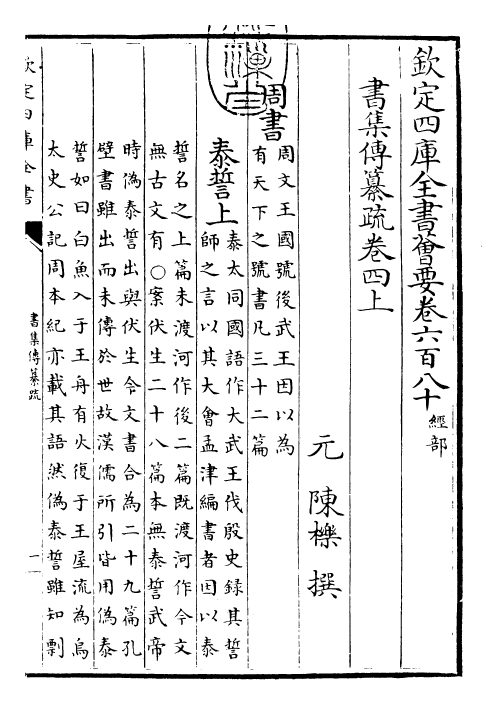 欽定四庫全書薈要卷六百八十 經部
書集傳纂疏卷四上
元 陳櫟 撰
周書
周文王國號後武王因以為
有天下之號書凡三十二篇
泰誓上
泰太同國語作大武王伐殷史録其誓
師之言以其大會孟津編書者因以泰
誓名之上篇未渡河作後二篇既渡河作今文
無古文有○案伏生二十八篇本無泰誓武帝
時偽泰誓出與伏生今文書合為二十九篇孔
壁書雖出而未傳於世故漢儒所引皆用偽泰
誓如曰白魚入于王舟有火復于王屋流為烏
太史公記周本紀亦載其語然偽泰誓雖知剽
欽定四庫全書
書集傳纂疏
一